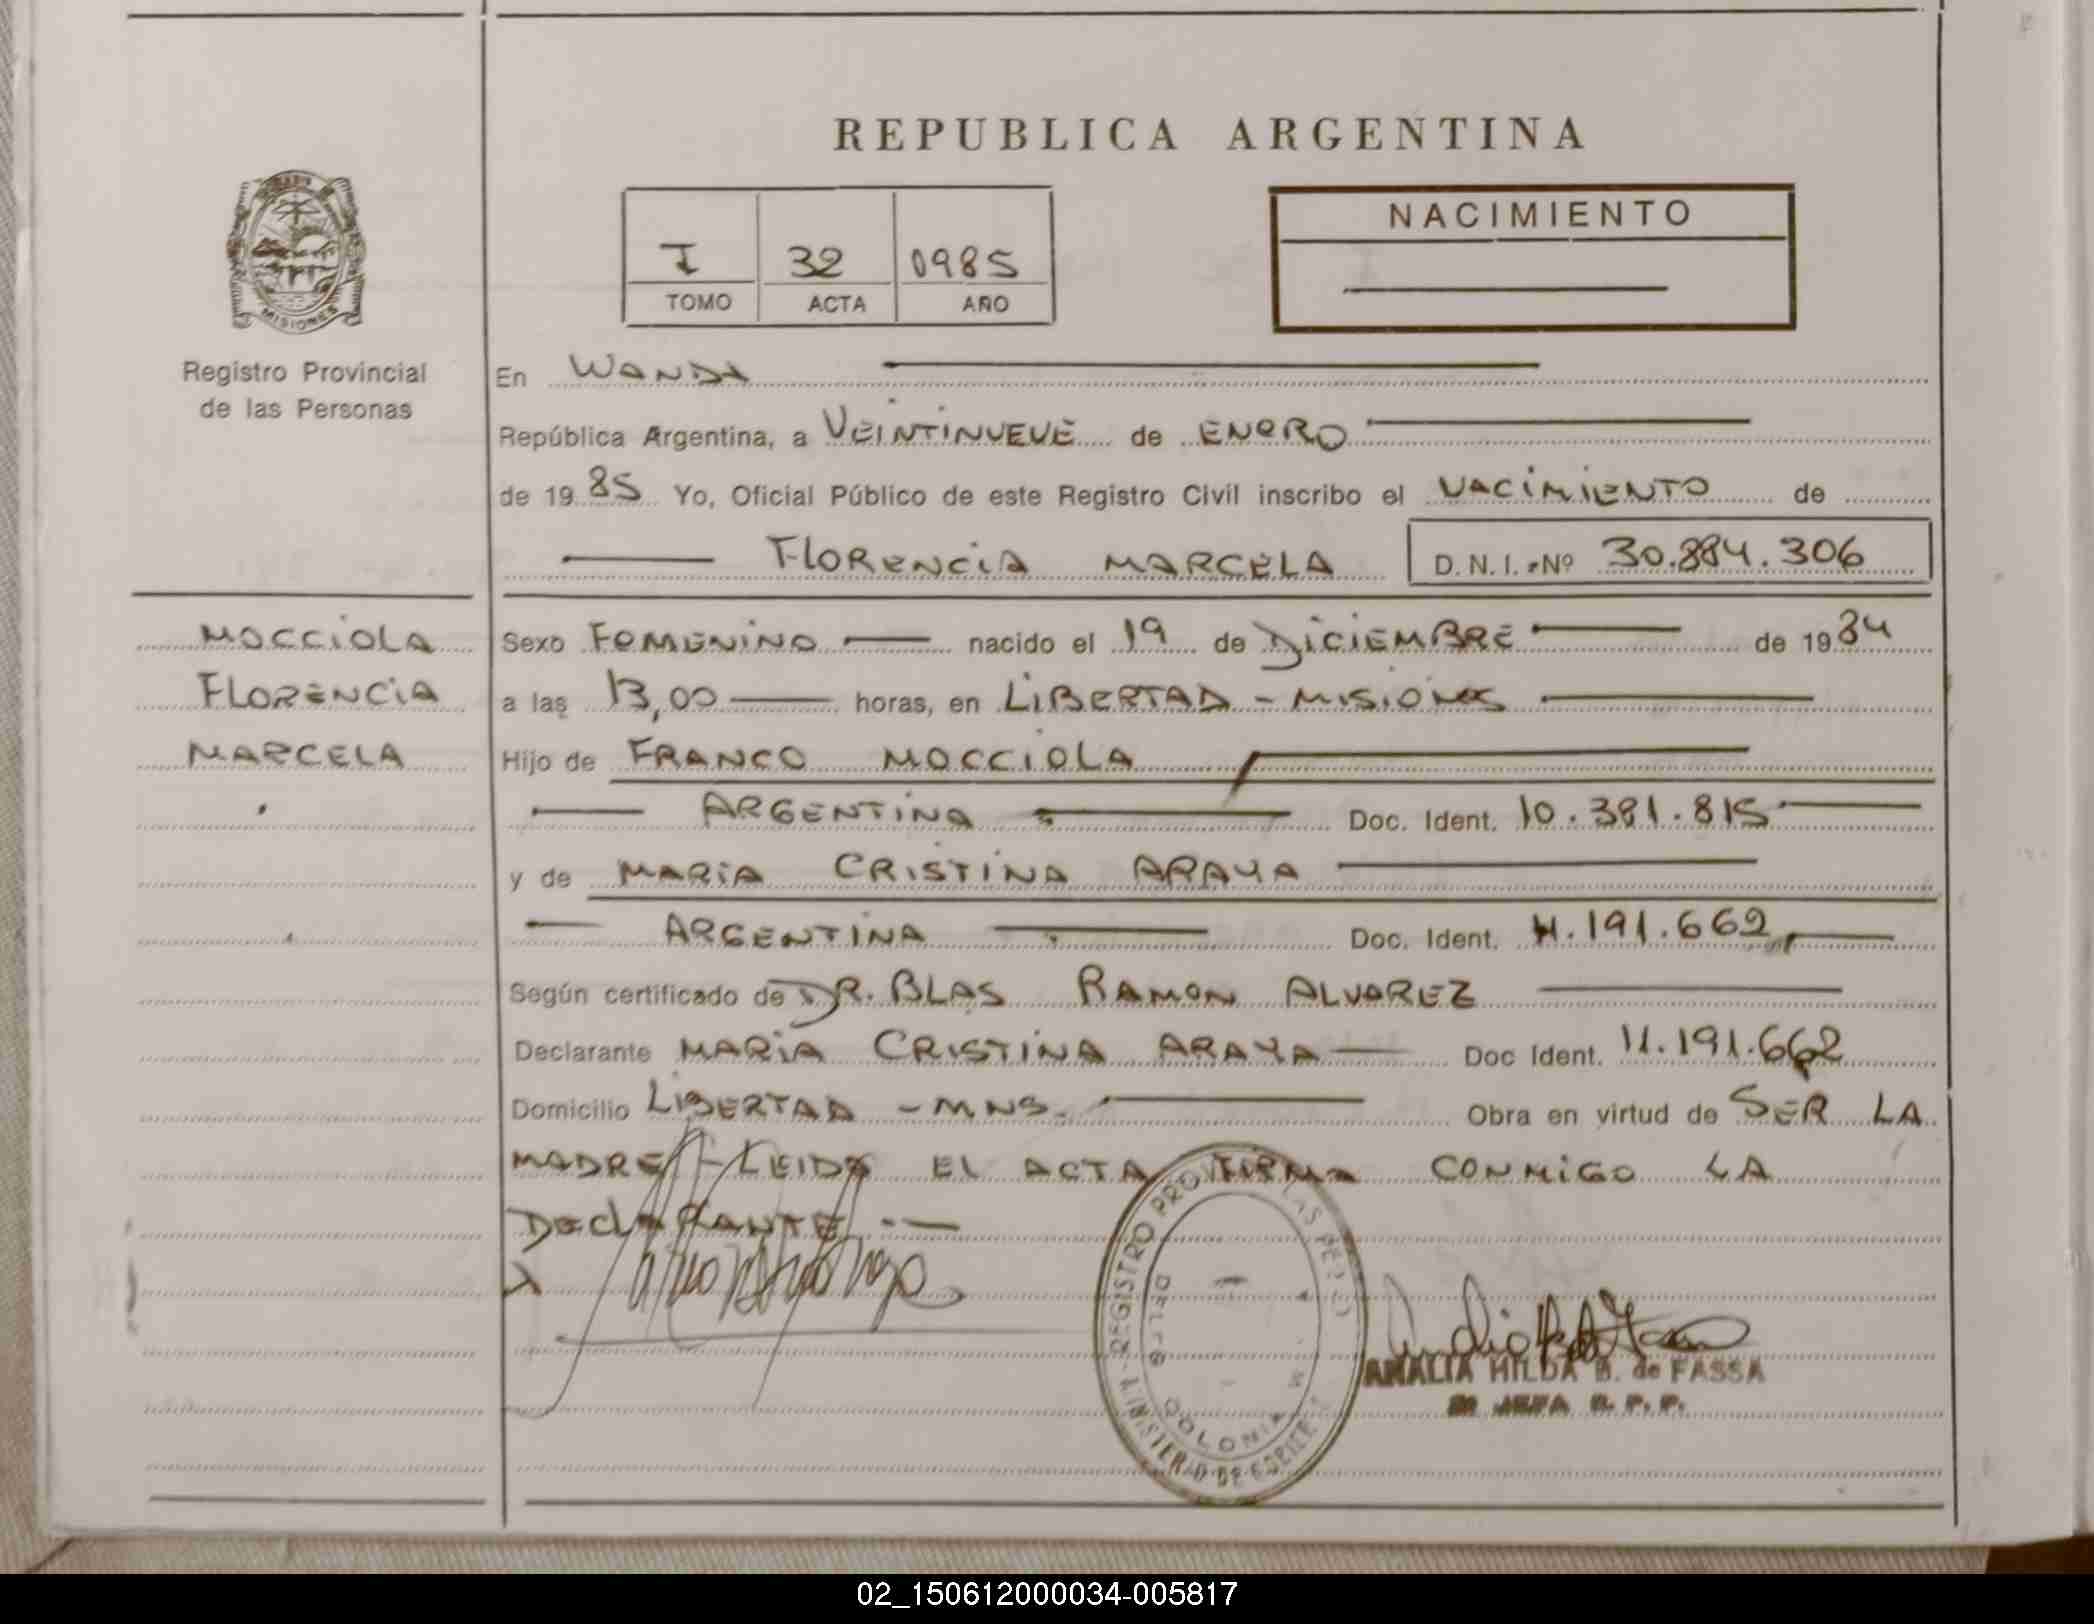 REPUBLICA ARGENTINA
I 32 0985
TOMO ACTA AÑO
NACIMIENTO
MISIONES
Registro Provincial
de las Personas
En WANDA
República Argentina, a VEINTINUEVE de ENERO
de 1985 Yo, Oficial Público de este Registro Civil inscribo el NACIMIENTO de
FLORENCIA MARCELA D.N.I. Nº 30.884.306
MOCCIOLA
FLORENCIA
MARCELA
Sexo FEMENINO nacido el 19 de DICIEMBRE de 1984
a las 13,00 horas, en LIBERTAD - MISIONES
Hijo de FRANCO MOCCIOLA
ARGENTINA Doc. Ident. 10.381.815
y de MARIA CRISTINA ARAYA
ARGENTINA Doc. Ident. 11.191.662
Según certificado de DR. BLAS RAMON ALVAREZ
Declarante MARIA CRISTINA ARAYA Doc Ident. 11.191.662
Domicilio LIBERTAD - MNS. Obra en virtud de SER LA
MADRE - LEIDA EL ACTA FIRMA CONMIGO LA
DECLARANTE.-
REGISTRO PROVI LAS PER
MINISTERIO DE
COLONIA
AMALIA HILDA B. de FASSA
JEFA R. P. P.
02_150612000034-005817